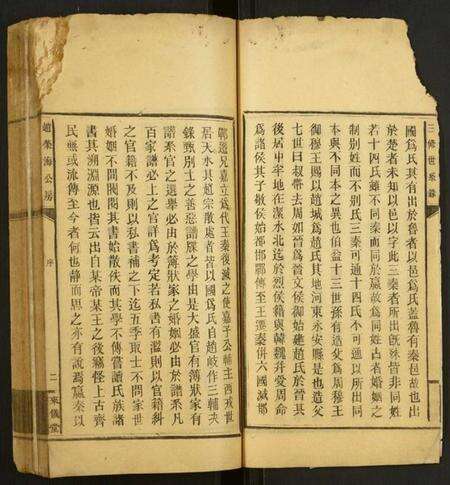 三修世系譜
國爲氏其有出於魯者以邑爲氏蓋魯有秦邑故也出
於楚者未知以邑以字此三秦者所出旣殊皆非同姓
若十四氏雖不同秦而同於嬴故爲同姓古者婚姻之
制別姓而不別氏三秦可通十四氏不可通以所出同
本與不同本之異也伯益十三世孫有造父爲周穆王
御穆王賜以趙城爲趙氏其地河東永安縣是也造父
七世曰叔帶去周如晉爲晉文侯御始建趙氏於晉其
後居中牢地在潔水北迄於烈侯籍與韓魏幷受周命
爲諸侯其子敬侯始都邯鄲傳至王遷秦併六國滅邯
鄲遷兄嘉立爲代王秦後滅之使嘉子公輔主西戎世
居天水其趙宗散處者皆以國爲氏自趙岐作三輔决
錄甄別士之善惡譜牒之學出是大盛官有簿狀家有
譜系官之選舉必由於薄狀家之婚姻必由於譜系凡
百家譜必上之官詳爲考定若私書有濫則以官籍糾
之官籍不及則以私書補之下迄五季取士不問家世
婚姻不問閥閱其書始散佚而其學不傳嘗讀氏族諸
書其溯淵源也皆云出自某帝某王之後竊怪上古齊
民無或流傳至今者何也靜而思之亦有說焉嬴秦以
趙榮海公房
序
二
東儀堂